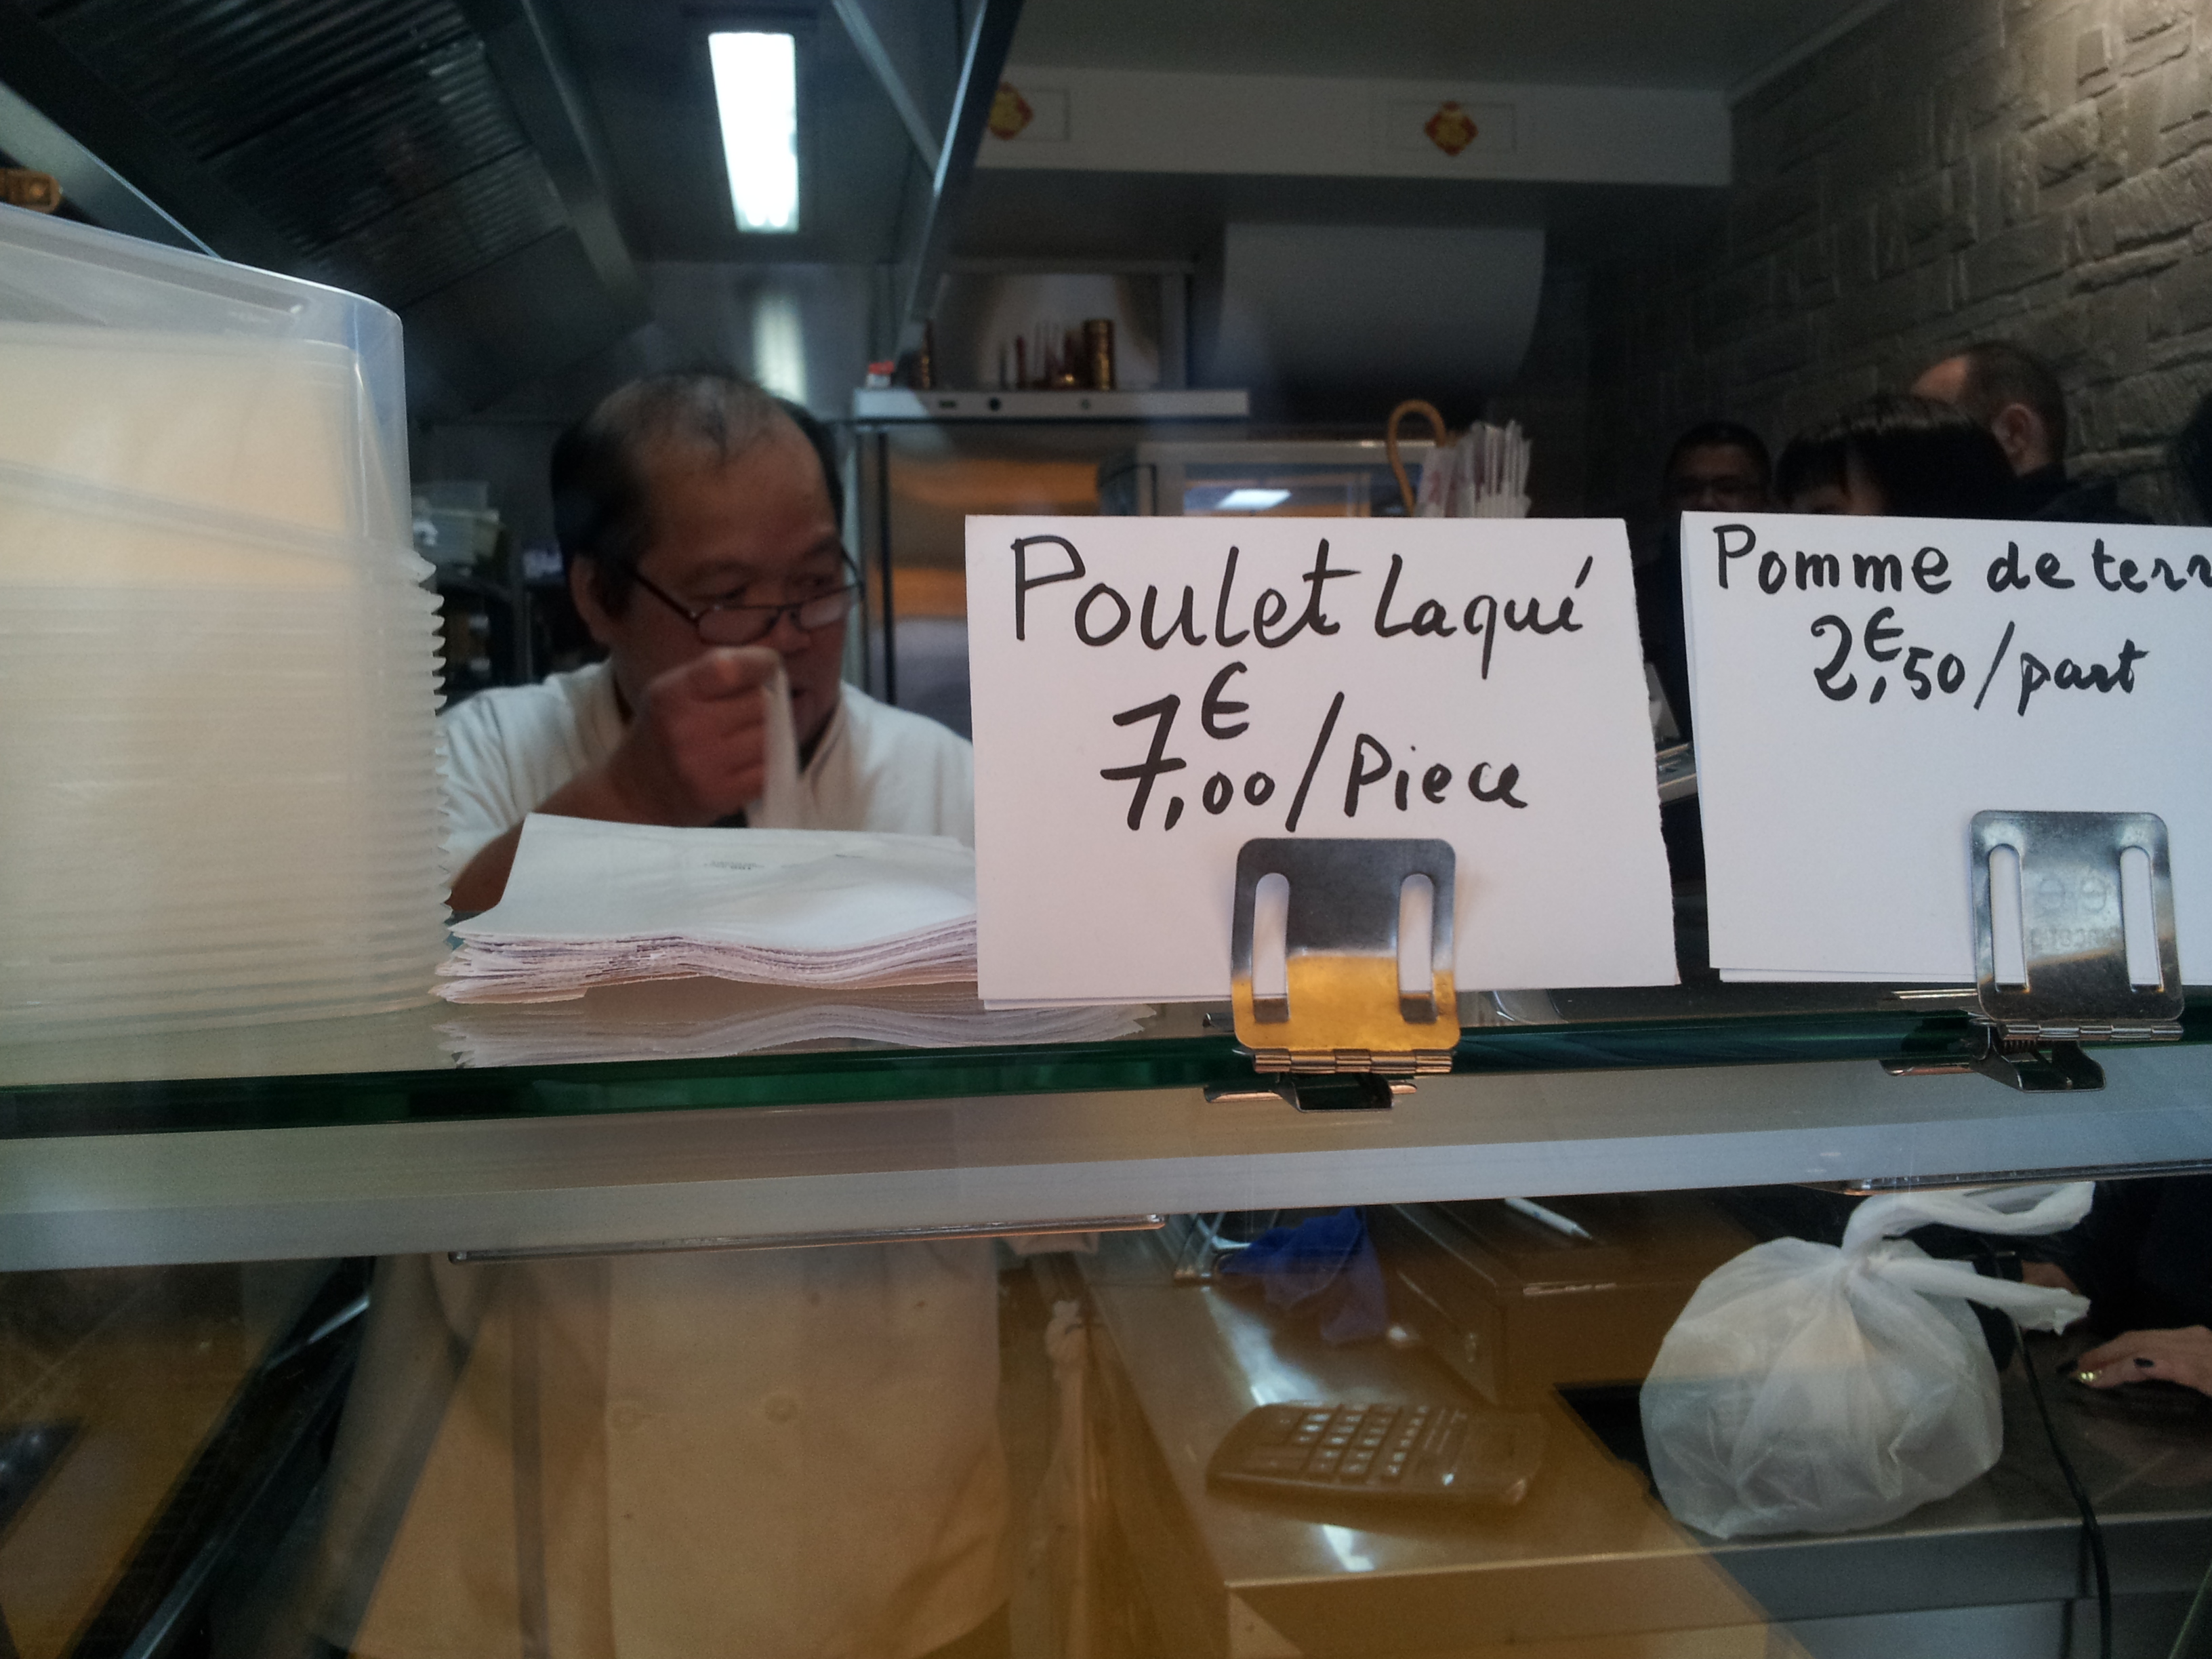 Poulet Laqué
7€,00/Piece
Pomme de terr
2€,50/part